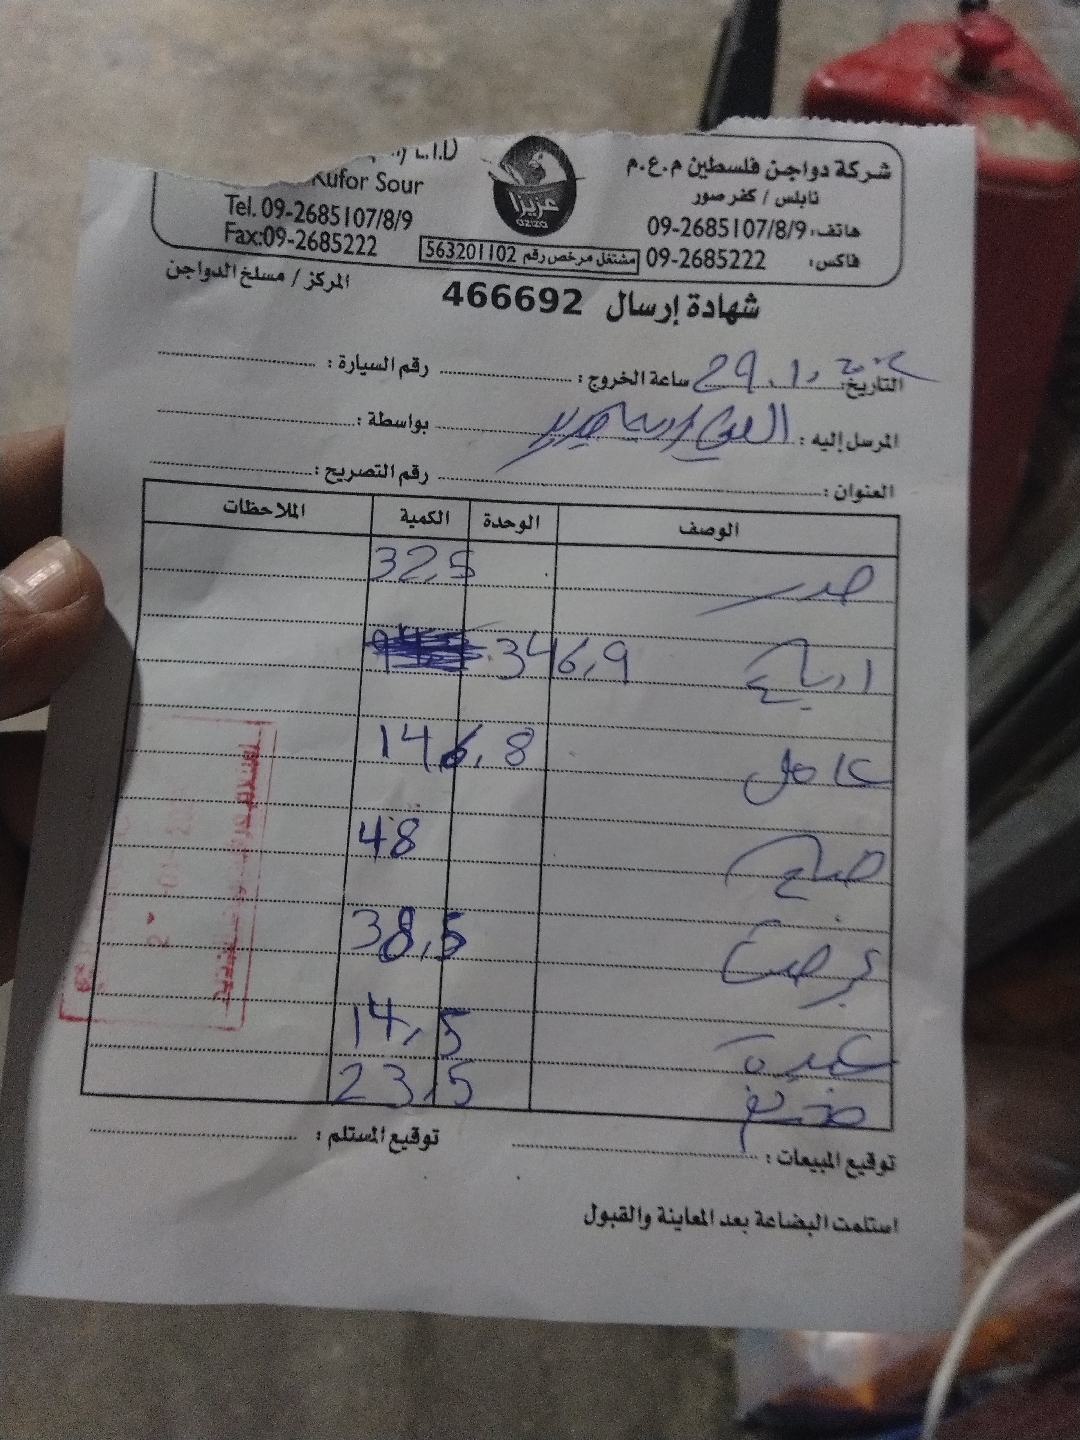 شركة دواجن فلسطين م.ع.م
نابلس / كفر صور
هاتف: 09-2685107/8/9
فاكس: 09-2685222
L.T.D
Kufor Sour
Tel. 09-2685107/8/9
Fax:09-2685222
عزيزا
مشتغل مرخص رقم 563201102
المركز / مسلخ الدواجن
شهادة إرسال 466692
التاريخ: 29.1. ساعة الخروج: رقم السيارة:
المرسل إليه: بواسطة:
العنوان: رقم التصريح:
الوصف الوحدة الكمية الملاحظات
صدر 32,5
ارباع 346,9
كامل 146,8
جناح 48
38,5
كبدة 14,5
23,5
توقيع المبيعات: توقيع المستلم:
استلمت البضاعة بعد المعاينة والقبول